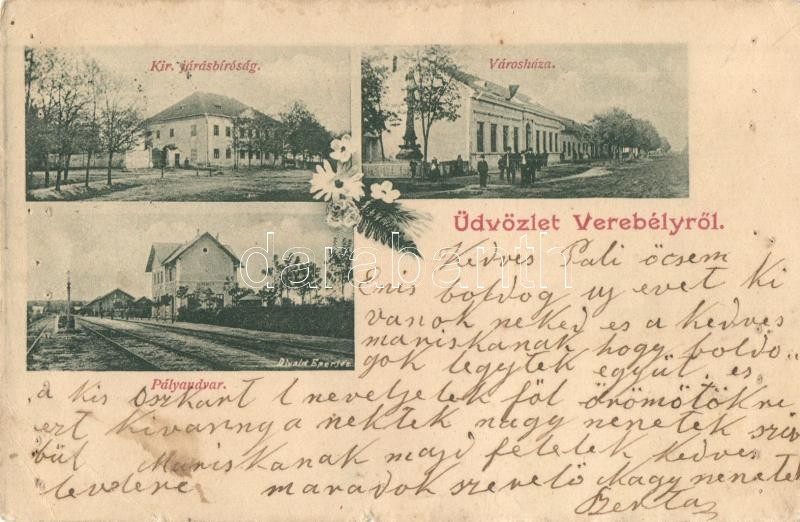 Kir. járásbíróság.
Városháza.
Üdvözlet Verebélyről.
Pályaudvar.
Divald Eperjes
darabanth
Kedves Pali öcsem
boldog uj evet ki
vanok neked es a kedves
mariskanak hogy boldo
gok legytek együt es
a kis oszkart neveljetek föl örömötökre
ezt kivannya nektek nagy nenetek sziv
bül Mariskanak majd felelek kedves
levelere maradok szerelö Nagy nenetek
Berta